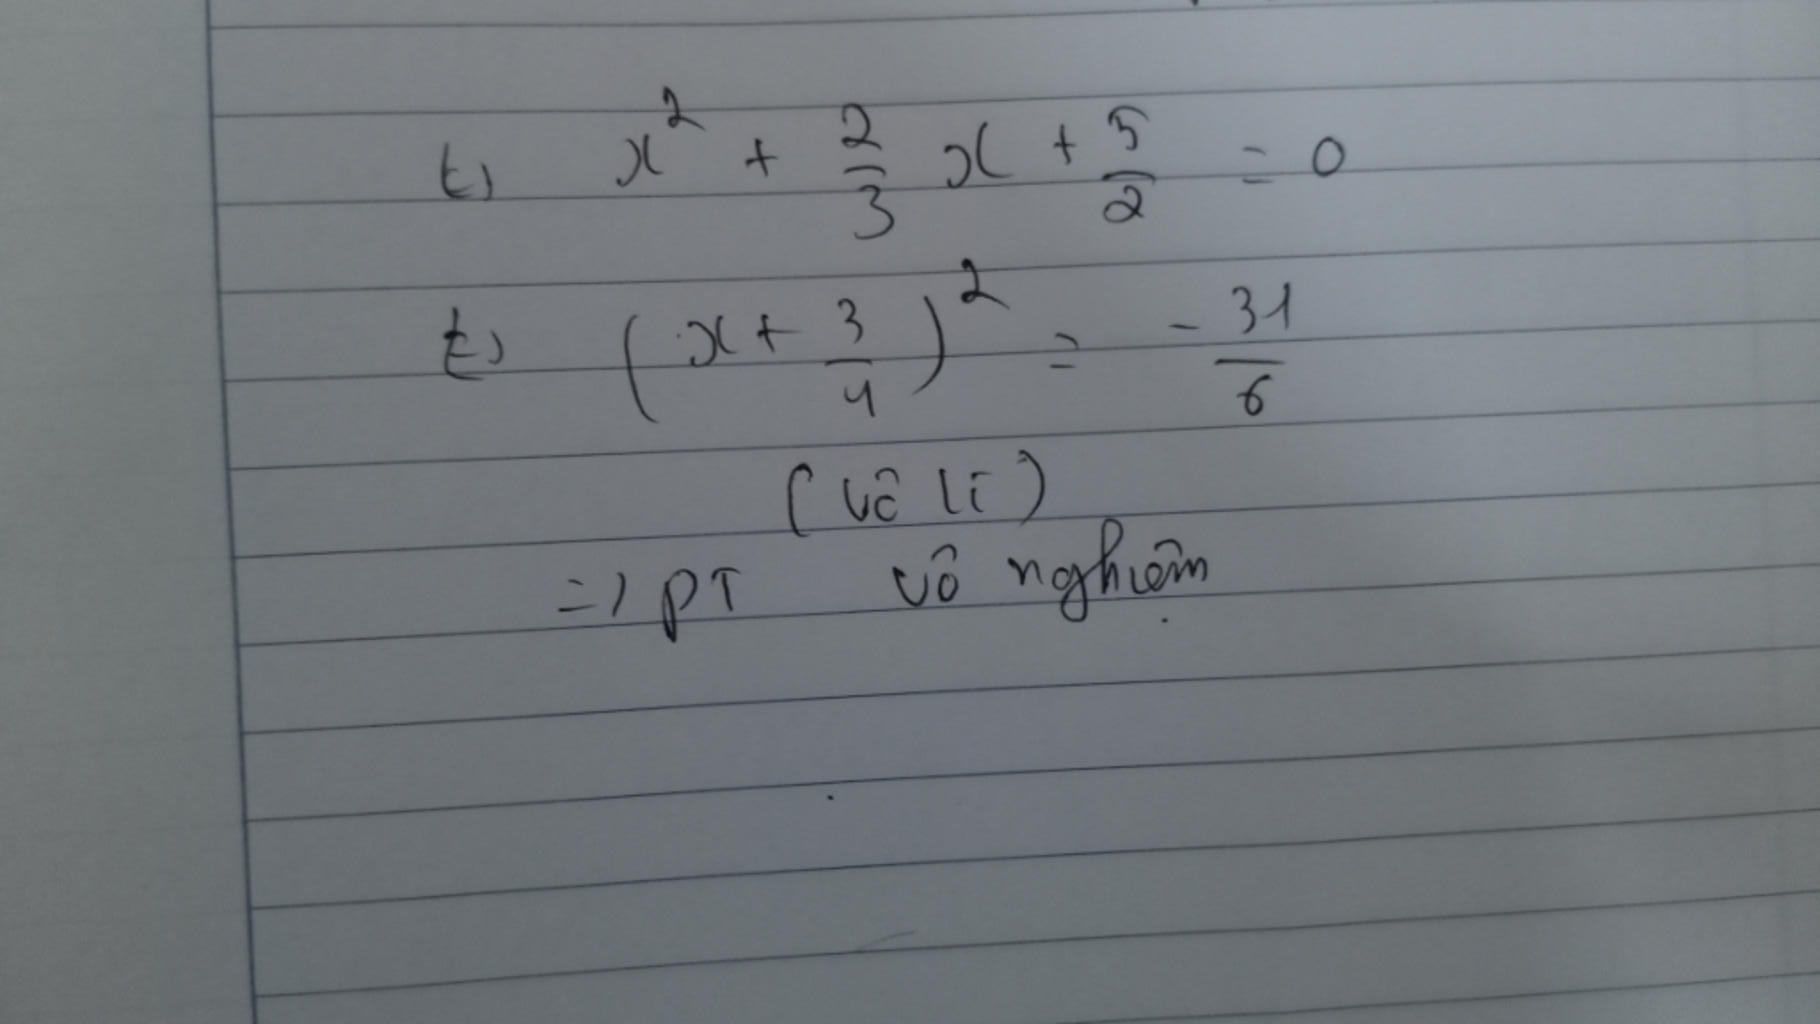 x² + 2/3 x + 5/2 = 0
(x + 3/4)² = -31/6
(vô lí)
=> PT vô nghiệm